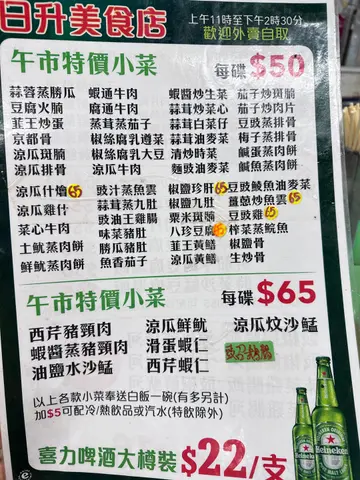 日升美食店
上午11時至下午2時30分
歡迎外賣自取
午市特價小菜 每碟 $50
蒜蓉蒸勝瓜 蝦通牛肉 蝦醬炒生菜 茄子炒斑腩
豆腐火腩 腐通牛肉 蒜茸炒菜心 茄子炒肉片
韮王炒蛋 蒜茸蒸茄子 蒜茸白菜仔 豆豉蒸排骨
京都骨 椒絲腐乳通菜 蒜茸油麥菜 梅子蒸排骨
涼瓜斑腩 椒絲腐乳大豆 清炒時菜 鹹蛋蒸肉餅
涼瓜排骨 涼瓜牛肉 麵豉油麥菜 鹹魚蒸肉餅
涼瓜什燴65 豉汁蒸魚雲 椒鹽珍肝65 豆豉鯪魚油麥菜
涼瓜雞什 蒜茸蒸九肚 椒鹽九肚 薑蔥炒魚雲65
菜心牛肉 豉油王雞腸 粟米斑腩 豆豉雞65
土魷蒸肉餅 味菜豬肚 八珍豆腐65 榨菜蒸鯇魚
鮮魷蒸肉餅 勝瓜豬肚 韮王黃鱔 椒鹽骨
魚香茄子 涼瓜黃鱔 生炒骨
午市特價小菜 每碟 $65
西芹豬頸肉 涼瓜鮮魷 涼瓜炆沙鯭
蝦醬蒸豬頸肉 滑蛋蝦仁
油鹽水沙鯭 西芹蝦仁
以上各款小菜奉送白飯一碗(有多另計)
加$5可配冷/熱飲品或汽水(特飲除外)
喜力啤酒大樽裝 $22/支
Heineken
Heineken